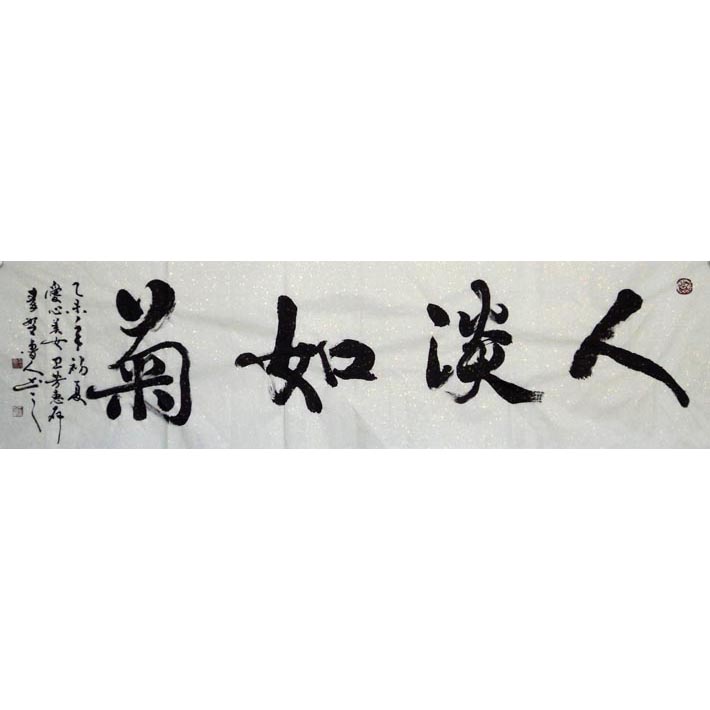 人淡如菊
乙未年初夏
爱心美女卫芳惠存